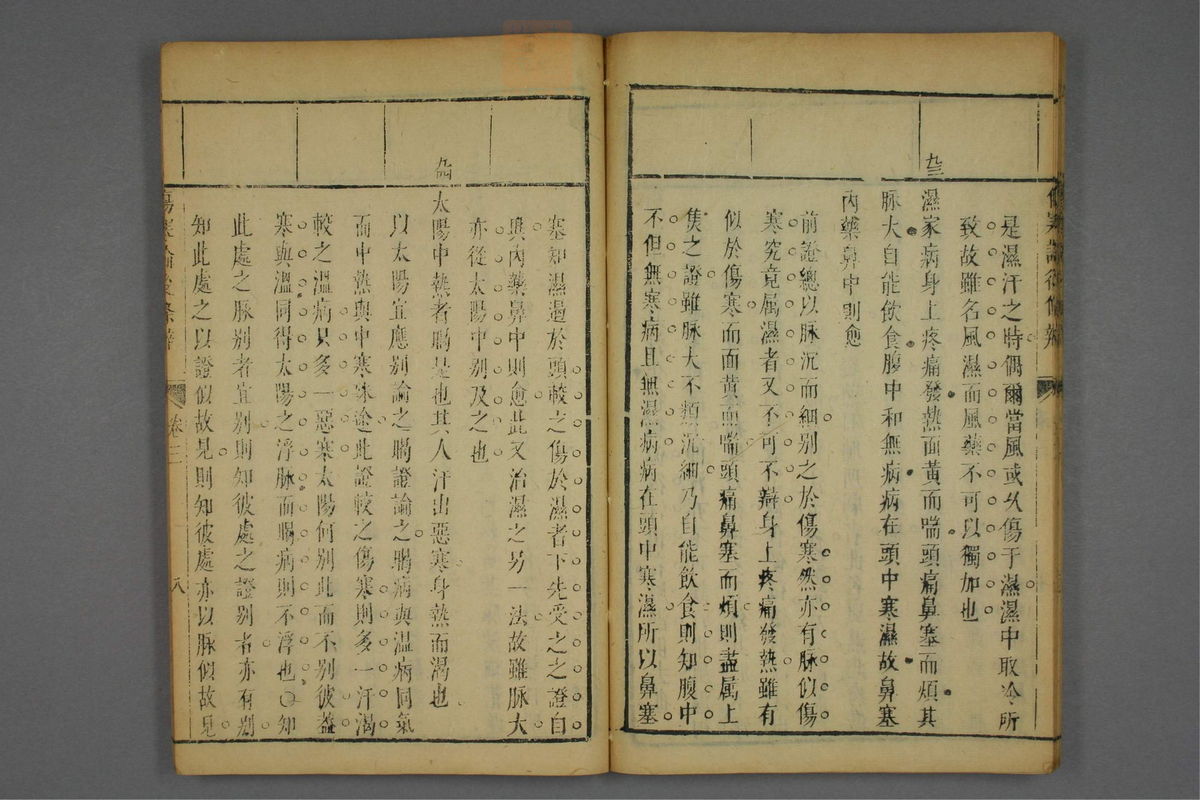 是濕汗之時偶爾當風或久傷于濕濕中取冷所
致故雖名風濕而風藥不可以獨加也
九三
濕家病身上疼痛發熱面黃而喘頭痛鼻塞而煩其
脉大自能飲食腹中和無病病在頭中寒濕故鼻塞
內藥鼻中則愈
前證總以脉沉而細别之於傷寒然亦有脉似傷
寒究竟属濕者又不可不辯身上疼痛發熱雖有
似於傷寒而面黃而喘頭痛鼻塞而煩則盡属上
焦之證雖脉大不類沉細乃自能飲食則知腹中
不但無寒病且無濕病病在頭中寒濕所以鼻塞
塞知濕過於頭較之傷於濕者下先受之之證自
與內藥鼻中則愈此又治濕之另一法故雖脉大
亦從太陽中别及之也
太陽中熱者暍是也其人汗出惡寒身熱而渴也
以太陽宜應别論之暍證論之暍病與温病同氣
而中熱與中寒殊途此證較之傷寒則多一汗渴
較之溫病只多一惡寒太陽何别此而不别彼蓋
寒與溫同得太陽之浮脉而暍病則不浮也〇知
此處之脉别者宜别則知彼處之證别者亦有别
知此處之以證似故見則知彼處亦以脉似故見
傷寒論後條辨
卷三
八